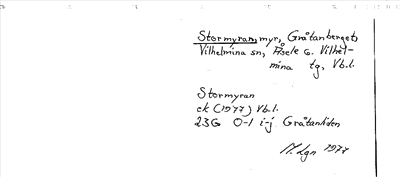 Stormyran, myr, Gråtanberget,
Vilhelmina sn, Åsele o. Vilhel-
mina tg, Vb.l.
Stormyran
ek (1977) Vb.l.
23G 0-1 i-j Gråtanliden
M. Lgn 1977